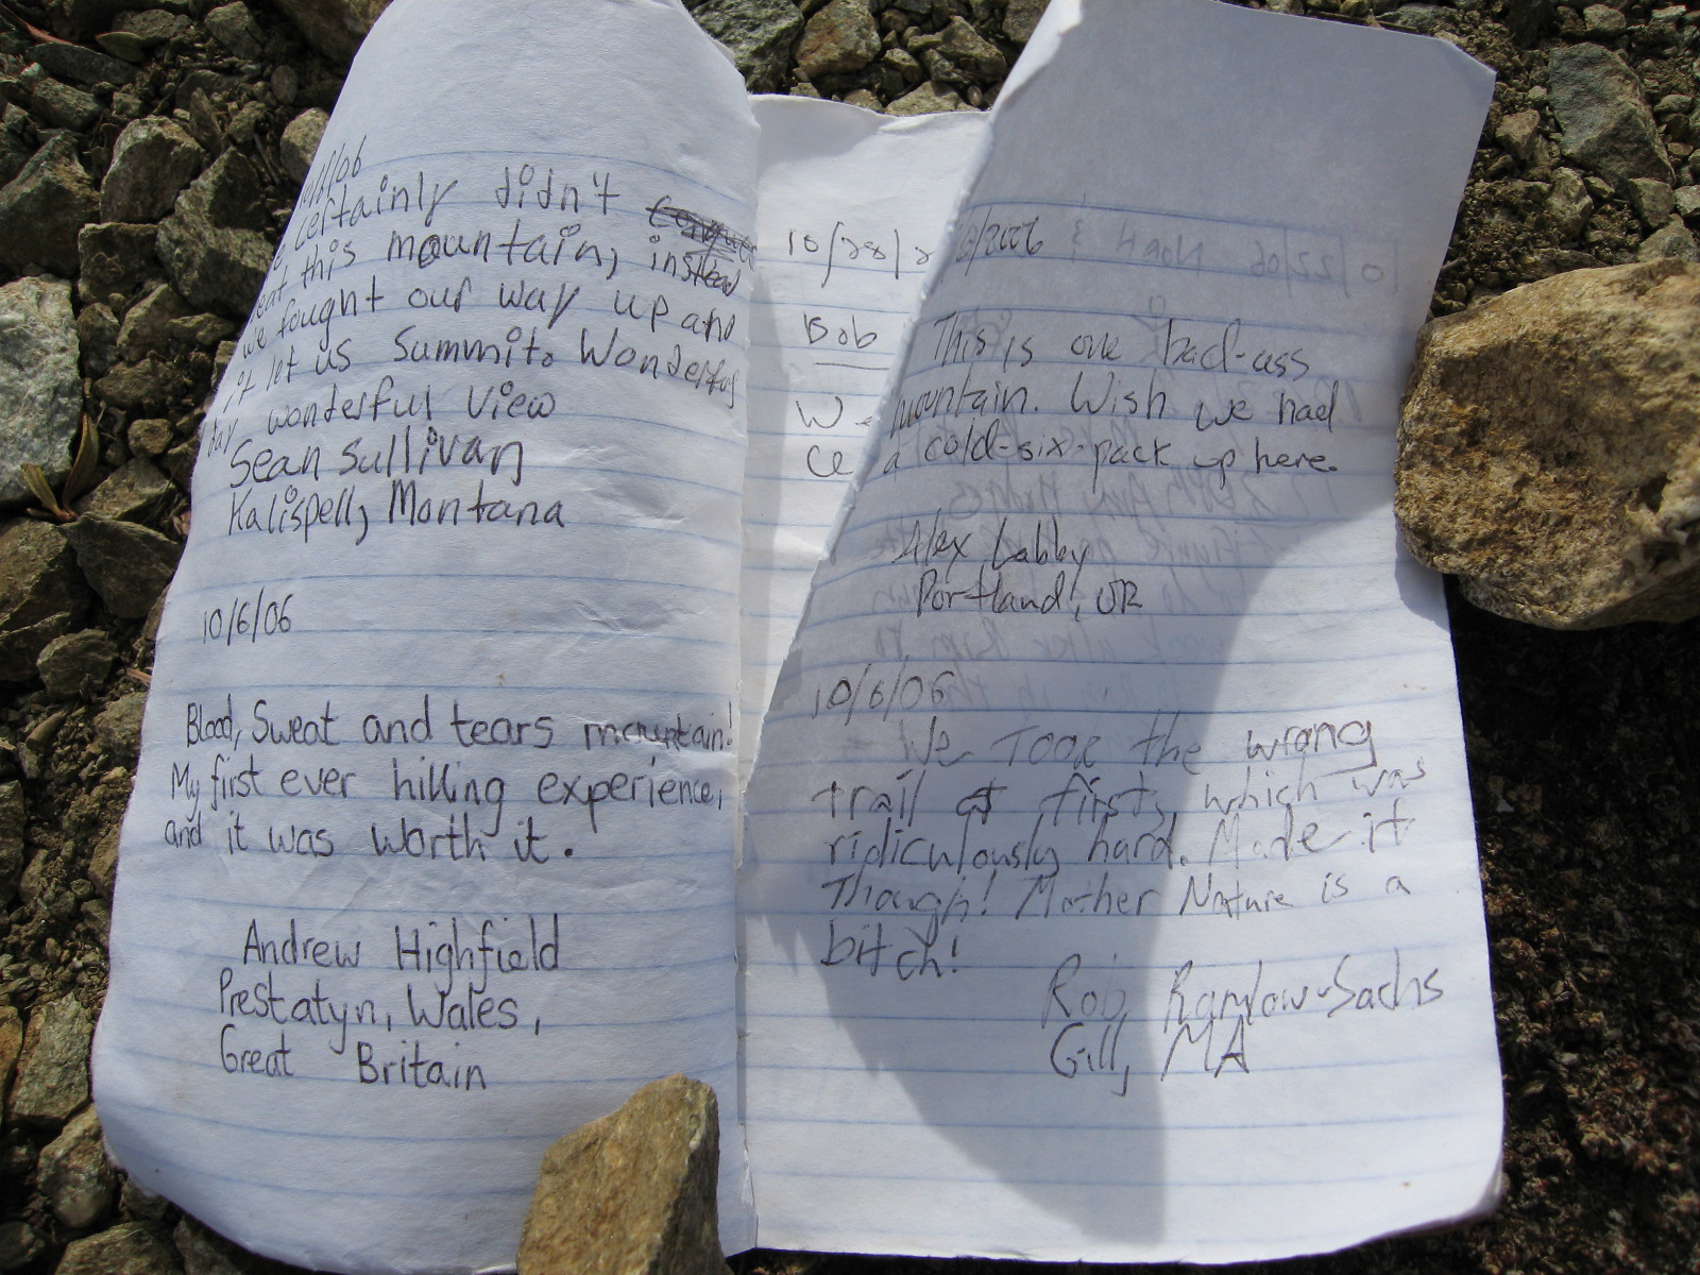 /06
certainly didn't
eat this mountain, instead
we fought our way up and
it let us summit. Wonderful
day wonderful view
Sean Sullivan
Kalispell, Montana
10/6/06
Blood, Sweat and tears mountain!
My first ever hiking experience,
and it was worth it.
Andrew Highfield
Prestatyn, Wales,
Great Britain
10/28/2
Bob
W
Ce
/2006
This is one bad-ass
mountain. Wish we had
a cold-six-pack up here.
Alex Labby
Portland, OR
10/6/06
We Took the wrong
trail at first, which was
ridiculously hard. Made it
Though! Mother Nature is a
bitch!
Rob Ramlow-Sachs
Gill, MA